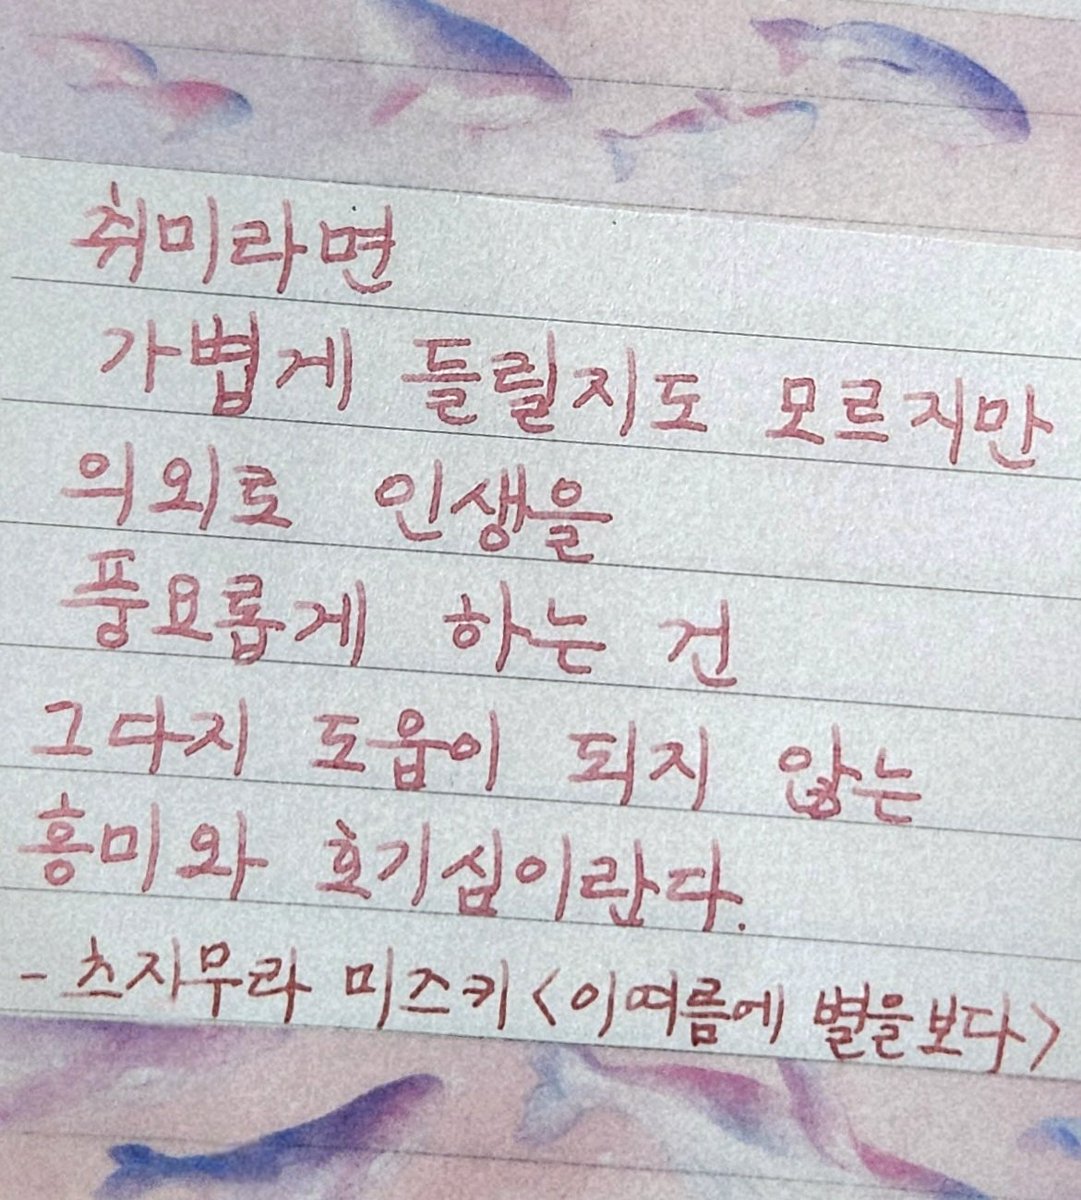 취미라면
가볍게 들릴지도 모르지만
의외로 인생을
풍요롭게 하는 건
그다지 도움이 되지 않는
흥미와 호기심이란다.
- 츠지무라 미즈키 <이 여름에 별을 보다>